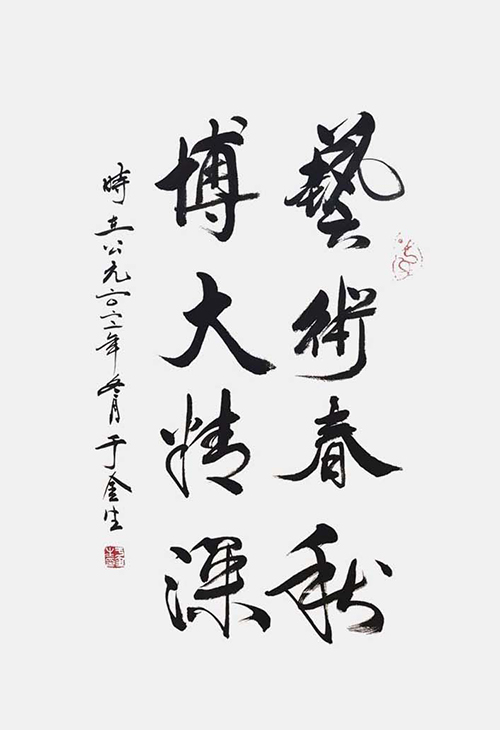 藝術春秋
博大精深
時在公元二〇〇年冬月于金生